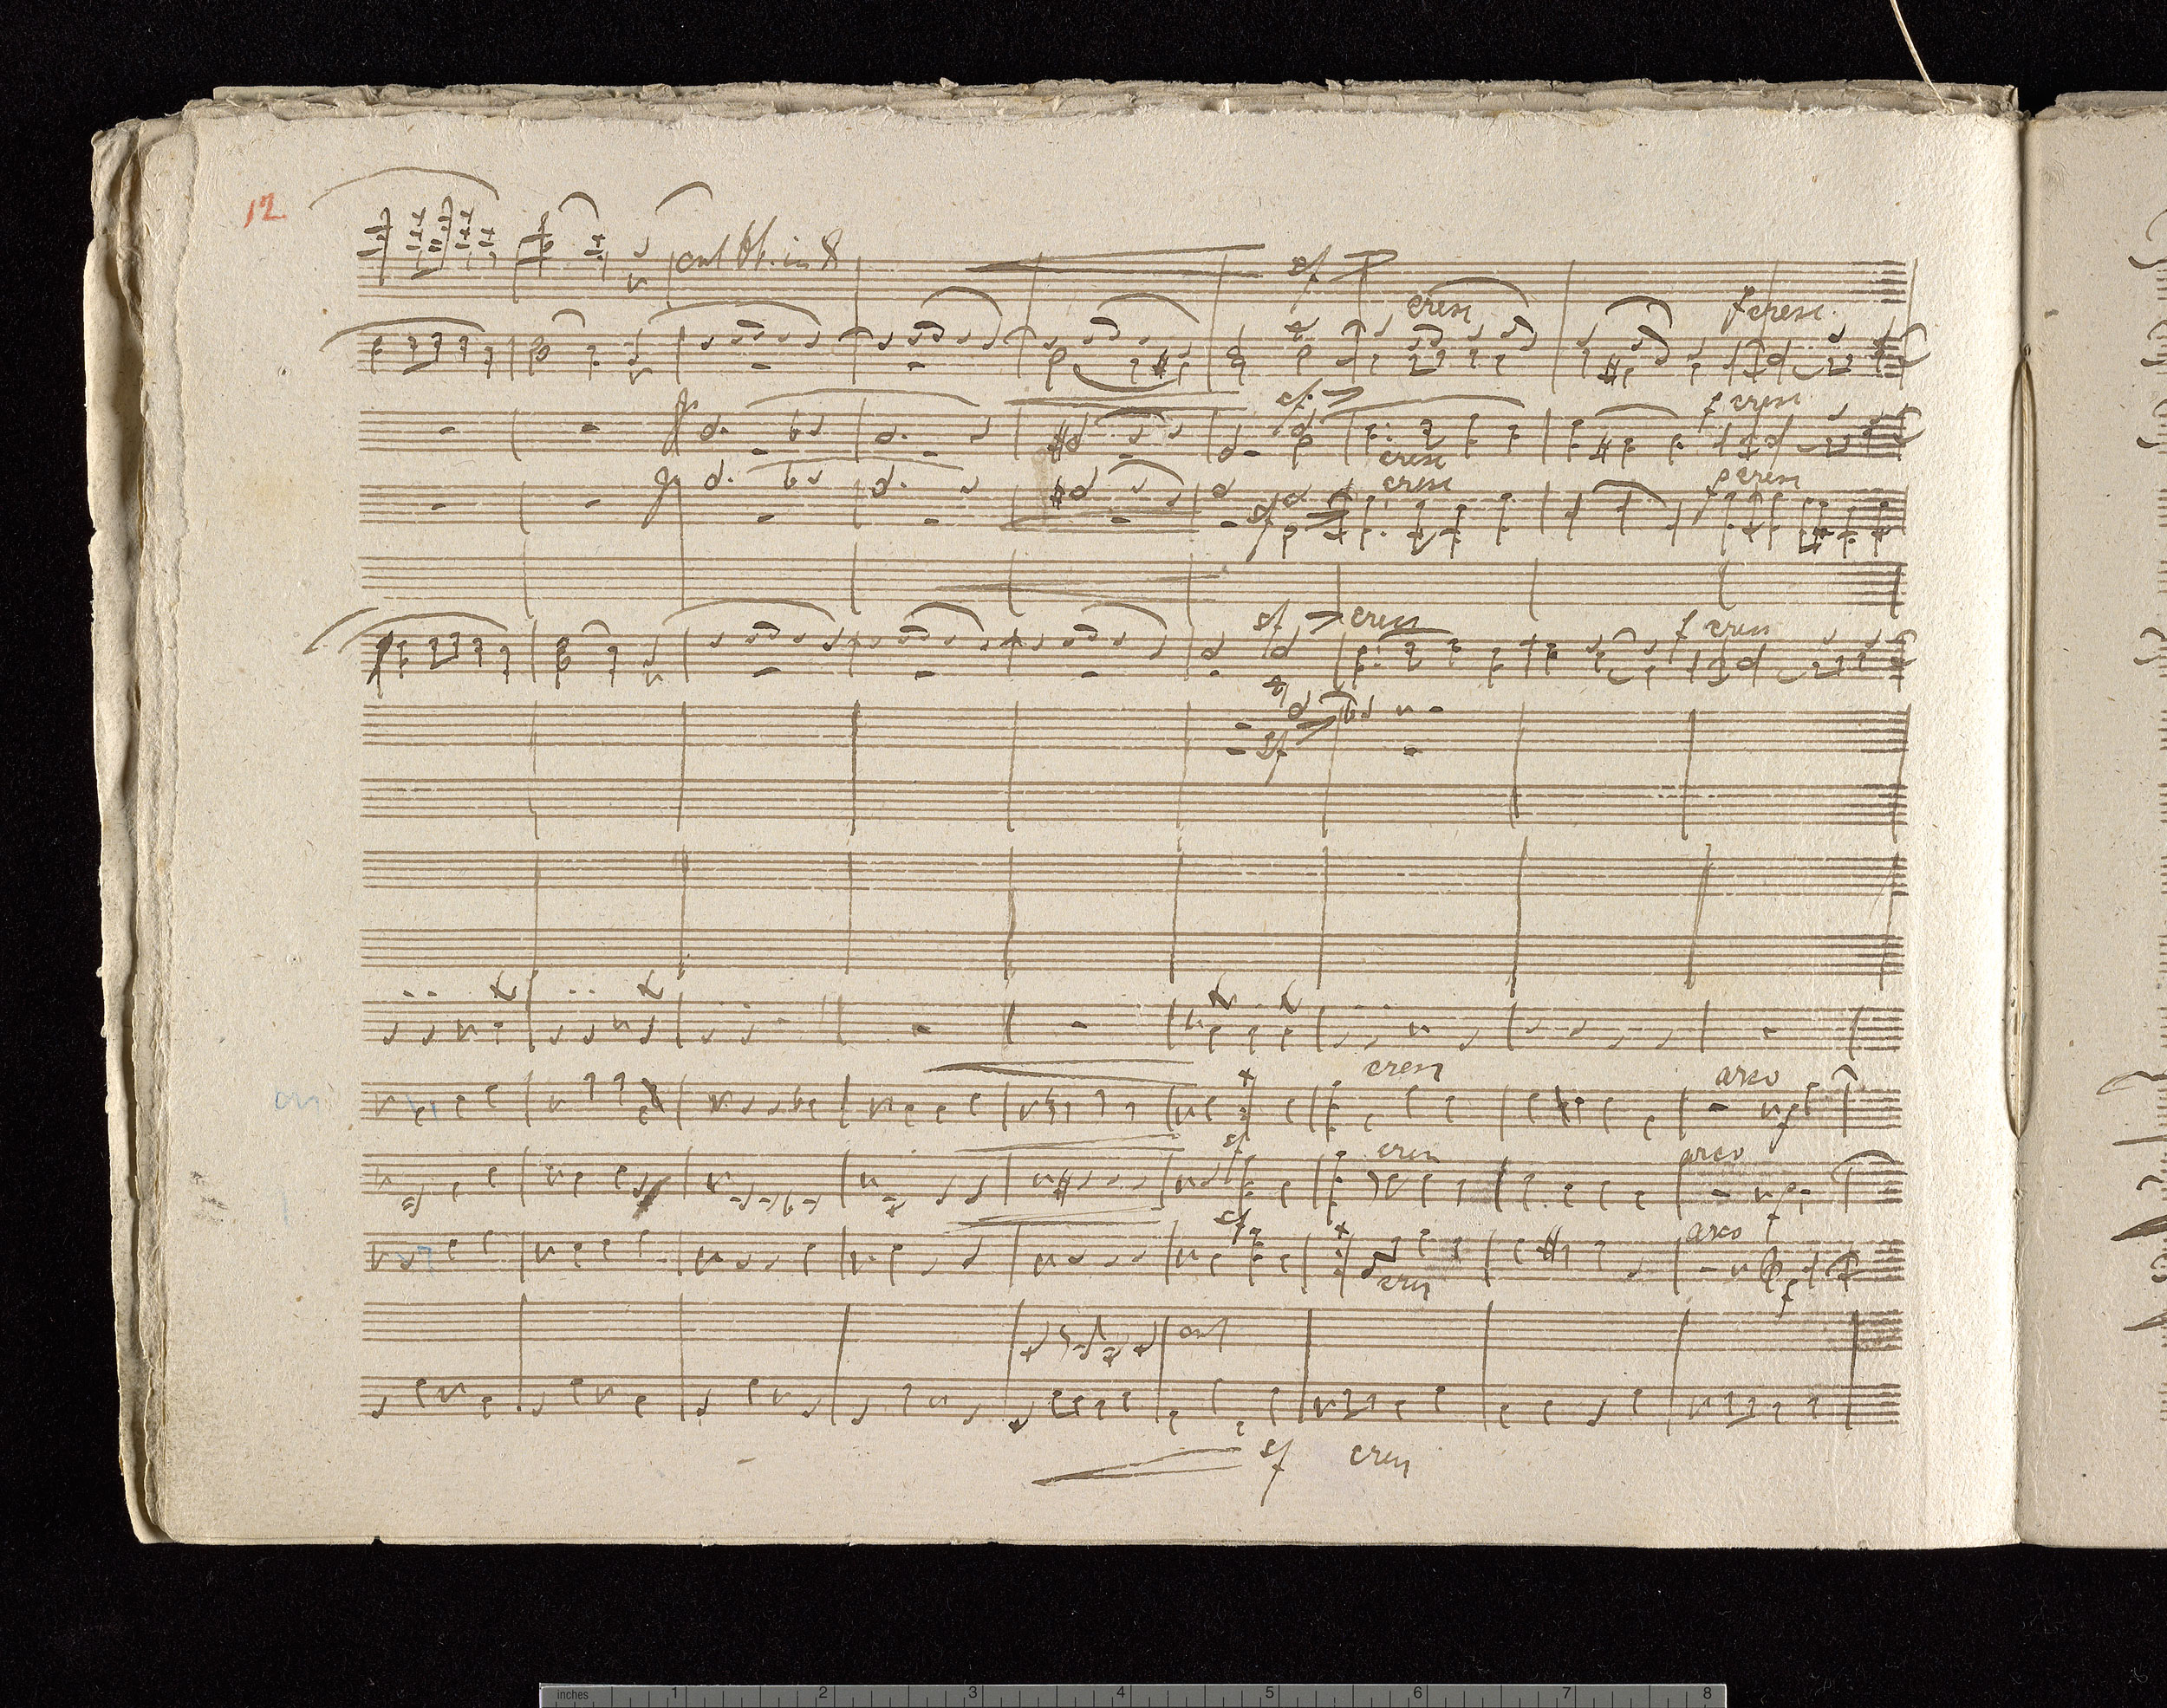 12
col Ob. in 8
sf
cresc
f cresc.
sf
f cresc
cresc
cresc
p cresc
sf
sf cresc
f cresc
sf
cresc
arco
sf
cresc
arco
f
sf
arco
cresc
f
sf cresc
inches 1 2 3 4 5 6 7 8